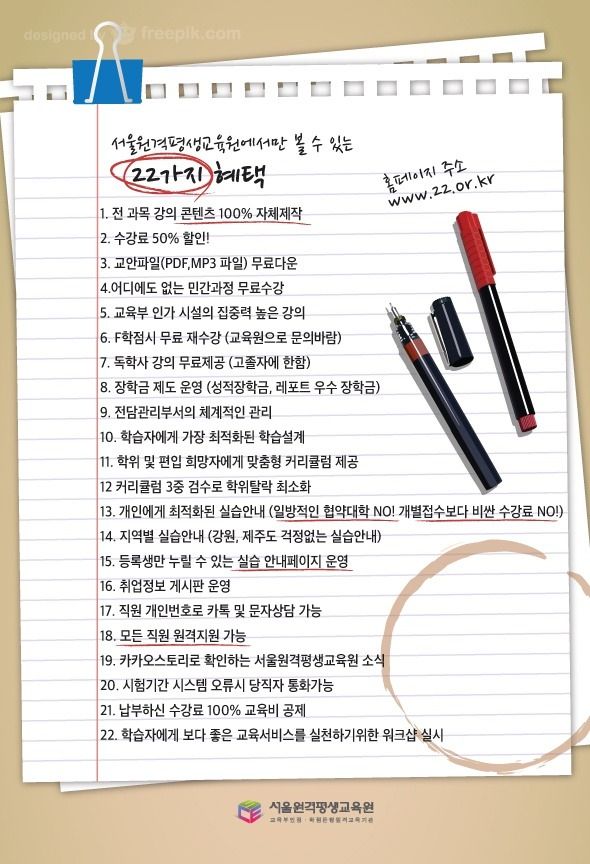 designed by freepik.com
서울원격평생교육원에서만 볼 수 있는
22가지 혜택
홈페이지 주소
www.22.or.kr
1. 전 과목 강의 콘텐츠 100% 자체제작
2. 수강료 50% 할인!
3. 교안파일(PDF,MP3 파일) 무료다운
4.어디에도 없는 민간과정 무료수강
5. 교육부 인가 시설의 집중력 높은 강의
6. F학점시 무료 재수강 (교육원으로 문의바람)
7. 독학사 강의 무료제공 (고졸자에 한함)
8. 장학금 제도 운영 (성적장학금, 레포트 우수 장학금)
9. 전담관리부서의 체계적인 관리
10. 학습자에게 가장 최적화된 학습설계
11. 학위 및 편입 희망자에게 맞춤형 커리큘럼 제공
12 커리큘럼 3중 검수로 학위탈락 최소화
13. 개인에게 최적화된 실습안내 (일방적인 협약대학 NO! 개별접수보다 비싼 수강료 NO!)
14. 지역별 실습안내 (강원, 제주도 걱정없는 실습안내)
15. 등록생만 누릴 수 있는 실습 안내페이지 운영
16. 취업정보 게시판 운영
17. 직원 개인번호로 카톡 및 문자상담 가능
18. 모든 직원 원격지원 가능
19. 카카오스토리로 확인하는 서울원격평생교육원 소식
20. 시험기간 시스템 오류시 당직자 통화가능
21. 납부하신 수강료 100% 교육비 공제
22. 학습자에게 보다 좋은 교육서비스를 실천하기위한 워크샵 실시
서울원격평생교육원
교육부인정 · 학점은행원격교육기관